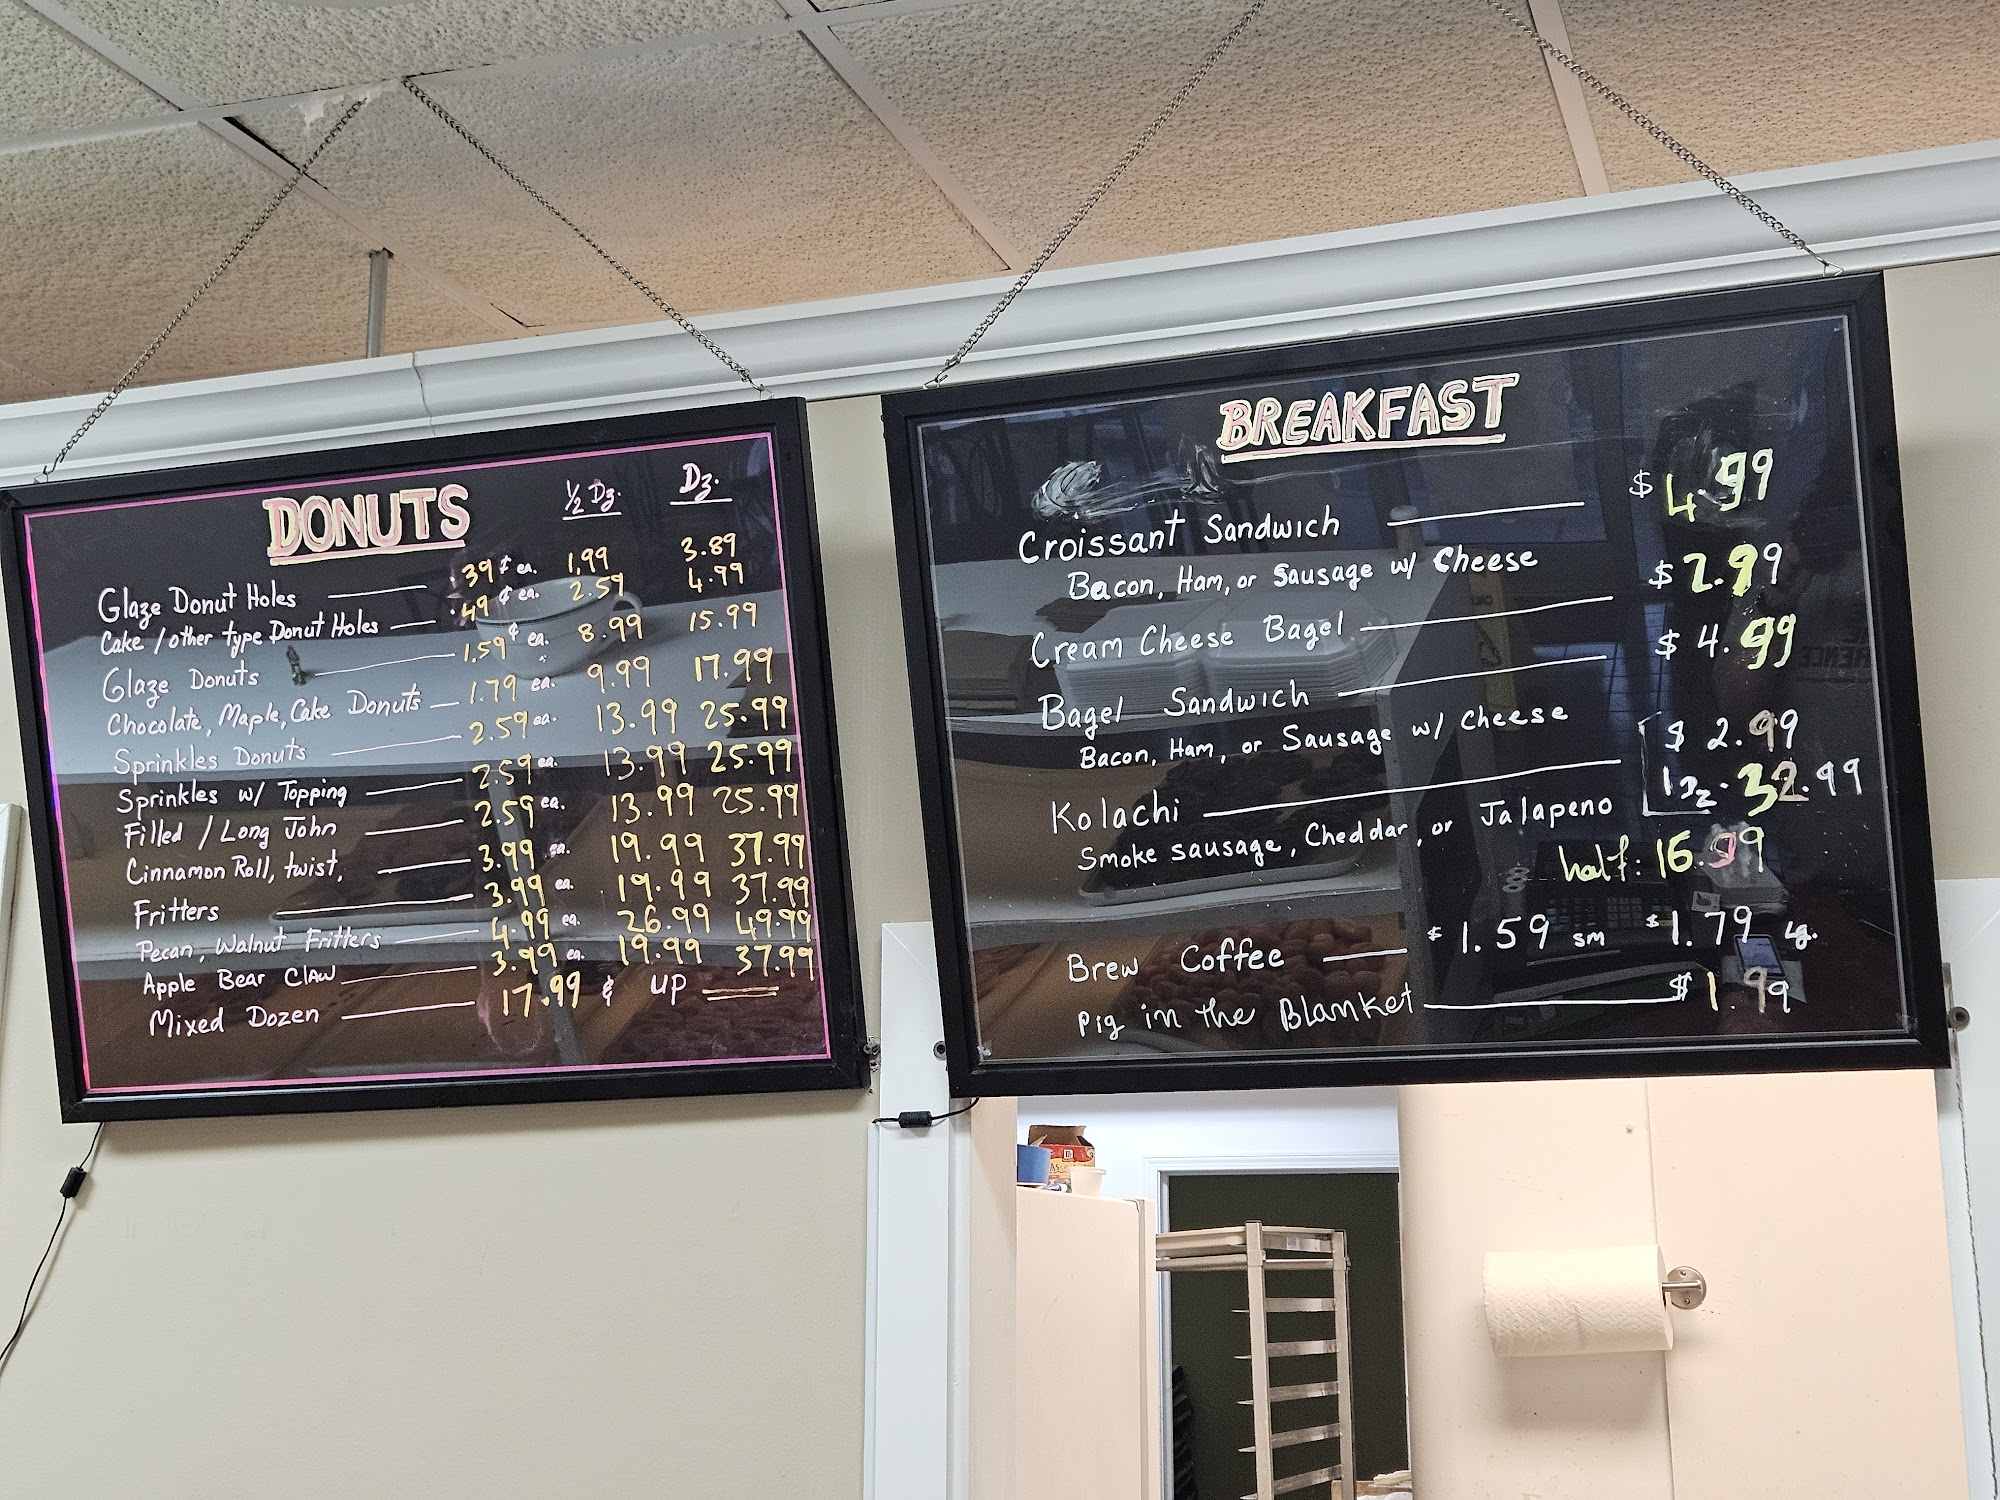 DONUTS ½ Dz. Dz.
Glaze Donut Holes .39¢ ea. 1.99 3.89
Cake / other type Donut Holes .49¢ ea. 2.59 4.99
Glaze Donuts 1.59¢ ea. 8.99 15.99
Chocolate, Maple, Cake Donuts 1.79 ea. 9.99 17.99
Sprinkles Donuts 2.59 ea. 13.99 25.99
Sprinkles w/ Topping 2.59 ea. 13.99 25.99
Filled / Long John 2.59 ea. 13.99 25.99
Cinnamon Roll, twist, 3.99 ea. 19.99 37.99
Fritters 3.99 ea. 19.99 37.99
Pecan, Walnut Fritters 4.99 ea. 26.99 49.99
Apple Bear Claw 3.99 ea. 19.99 37.99
Mixed Dozen 17.99 & UP
BREAKFAST
Croissant Sandwich $ 4.99
Bacon, Ham, or Sausage w/ Cheese
Cream Cheese Bagel $ 2.99
Bagel Sandwich $ 4.99
Bacon, Ham, or Sausage w/ Cheese
Kolachi $ 2.99
Smoke sausage, Cheddar, or Jalapeno 1 Dz. 32.99
half: 16.99
Brew Coffee $ 1.59 sm $ 1.79 Lg.
Pig in the Blanket $ 1.99